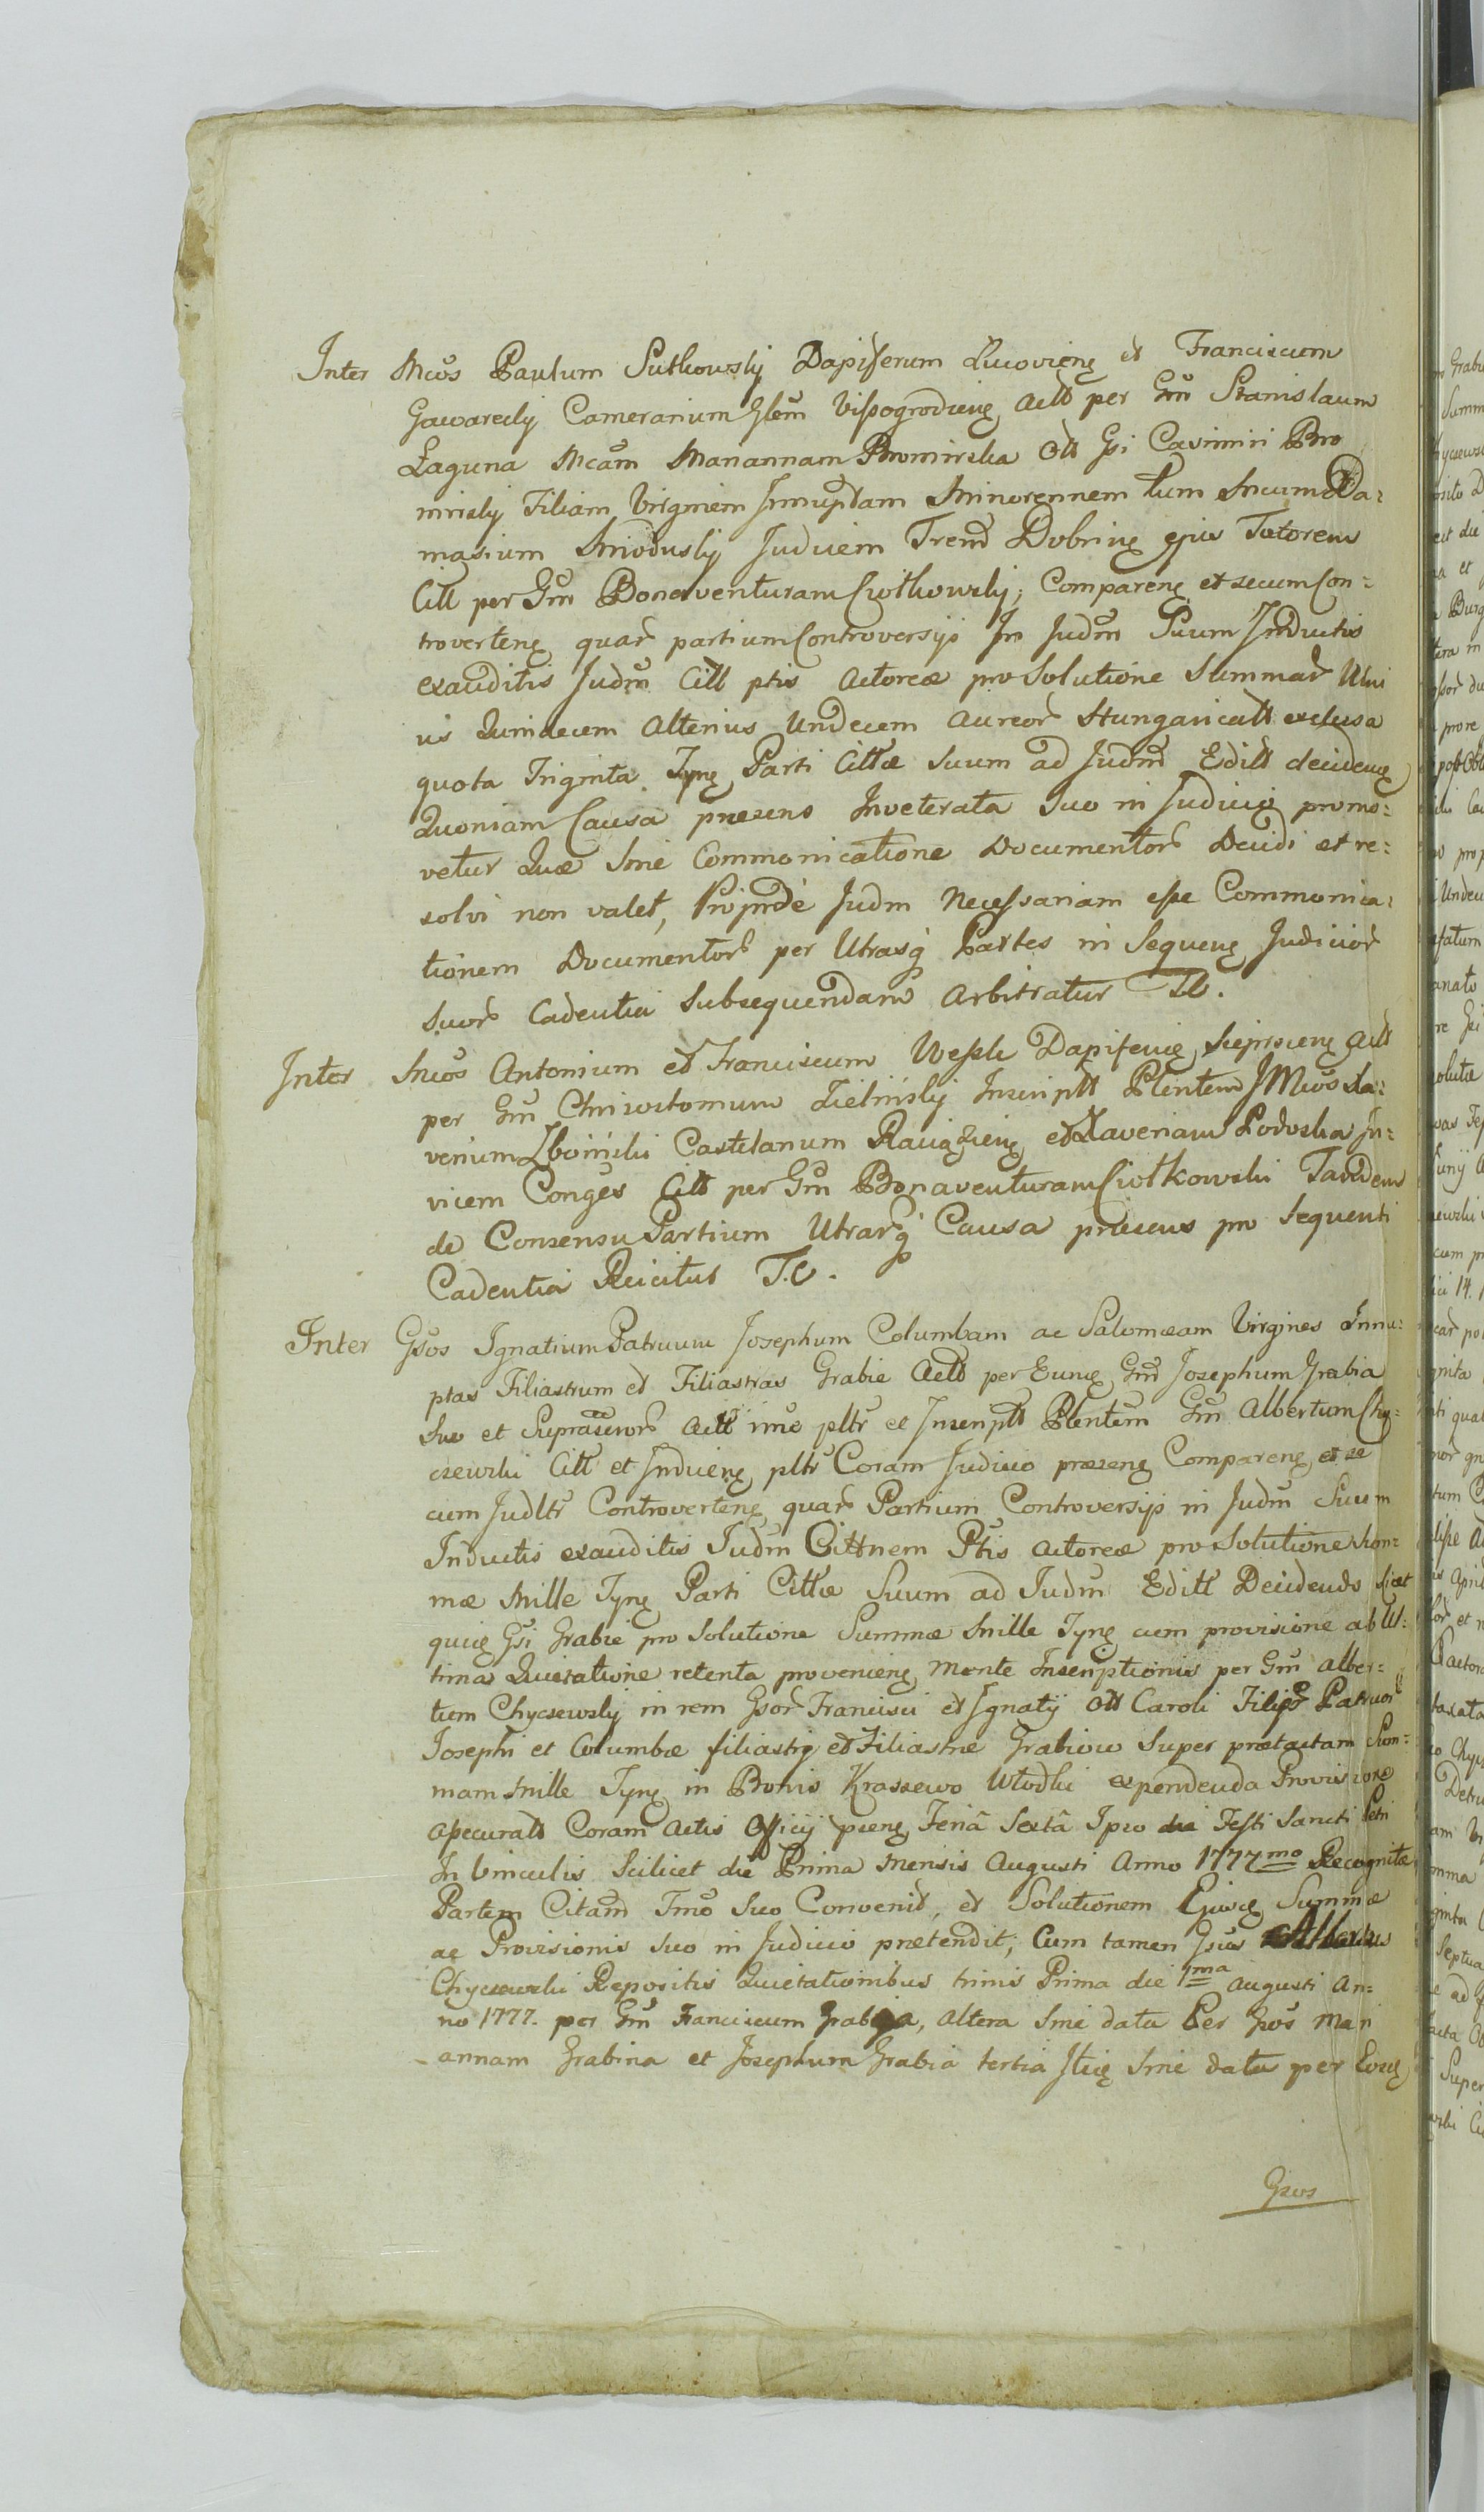 Inter Mcos Paulum Sutkowsky Dapiferum Zucoviens et Franciscum
Gawarecky Camerarium Glem Vissogrodiens Actt per Gm Stanislaum
Laguna Mcam Mariannam Bromirska Ott Gsi Casimiri Bro
mirsky Filiam Virginem Innuptam Minorennem tum Mcum Da=
masium Mioduski Judicem Trend Dobrins ejus Tutorem
Citt per Gm Bonaventuram Ciołkowsky; Comparens et secum Con=
trovertens quar partium Controversijs In Judm Suum Inductis
exauditis Judm Citt ptis Actoreæ pro Solutione Summar Uni
us Quindecem Alterius Undecem Aureor Hungaricatt exclusa
quota Triginta Tyns Parti Cittæ Suum ad Judm Editt decidens
Quoniam Causa præsens Inveterata Suo in Judicio promo=
vetur Quæ Sine Communicatione Documentor Decidi et re=
solvi non valet, Proinde Judm Necessariam esse Communica=
tionem Documentor per Utrasq Partes in Sequens Judicior
Suor Cadentia Subsequendam Arbitratur TC.
Inter Mcos Antonium et Franciscum Wessle Dapiferis Sieprsciens Actt
per Gm Chrisostomum Zielinsky Inscriptt Plentem JMcos Xa=
verium Zboinski Castelanum Raciąziens et Xaveriam Podoska In=
vicem Conges Citt per Gm Bonaventuram Ciołkowski Tandem
de Consensu Partium Utrarq Causa præsens pro Sequenti
Cadentia Reicitur T.C.
Inter Gsos Ignatium Patruum Josephum Columbam ac Salomeam Virgines Innu=
ptas Filiastrum et Filiastras Grabie Actt per Eunq Gm Josephum Grabia
Suo et Suprascror Actt imo pltr et Inscriptt Plentem Gm Albertum Chy=
czewski Citt et Indiciens pltr Coram Judicio præsens Comparens et se
cum Judltr Controvertens quar Partium Controversijs in Judm Suum
Inductis exauditis Judm Cittnem Ptis Actoreæ pro Solutione Sum=
mæ Mille Tyns Parti Cittæ Suum ad Judm Editt Decidendo Licet
quic Gsi Grabie pro Solutione Summæ Mille Tyns cum provisione ab Ul=
tima Quietatione retenta proveniens Mente Inscriptionis per Gm Alber=
tum Chyczewsky in rem Gsor Francisci et Ignatij Ott Caroli Filior Patruor
Josephi et Columbæ filiastri et Filiastræ Grabiow Super prætactam Sum=
mam Mille Tyns in Bonis Kraszewo Włodki expendenda Provisione
assecuratt Coram Actis Officij præns Feriâ Sextâ Ipso die Festi Sancti Petri
In Vinculis Scilicet die Prima Mensis Augusti Anno 1777mo Recognitæ
Partem Citam Tmo Suo Convenit, et Solutionem Ejusq Summæ
ac Provisionis Suo in Judicio prætendit; Cum tamen Gsus Albertus
Chyczewski Repositis Quietationibus trinis Prima die 1ma Augusti An=
no 1777. per Gm Franciscum Grabia, altera Sine data Per Gsos Mari
annam Grabina et Josephum Grabia tertia Itiq Sine data per Eosq
Gsos